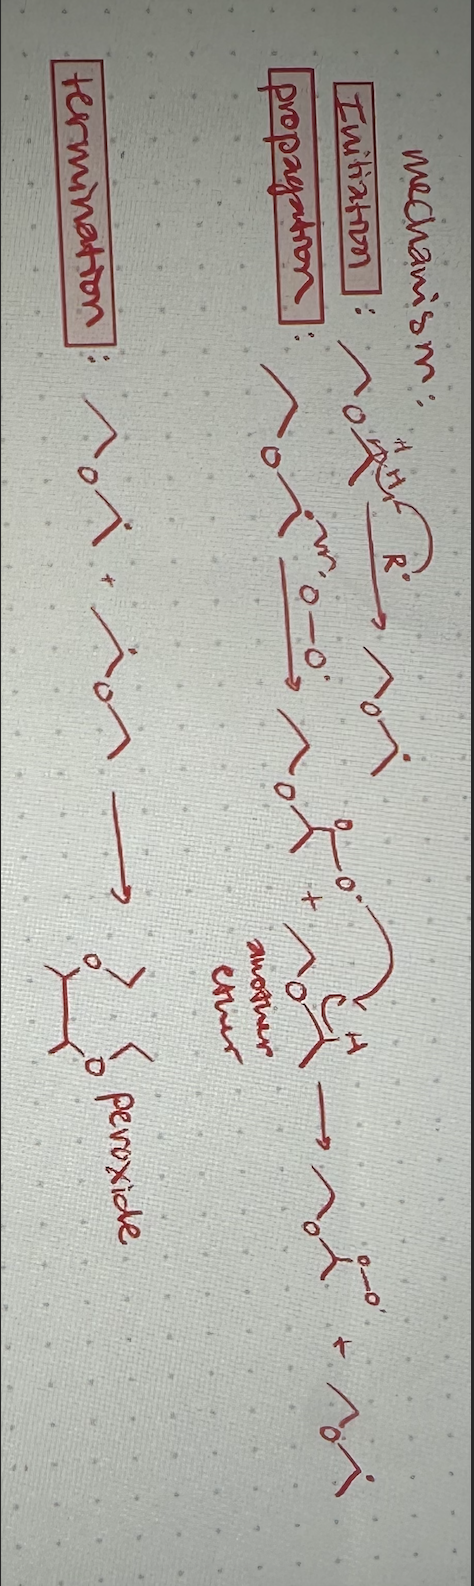 mechanism:
Initiation : O H H R• → O •
propagation : O • •O–O• → O O O• + O H → O O–O• + O •
another
ether
termination : O • + • O → O O peroxide